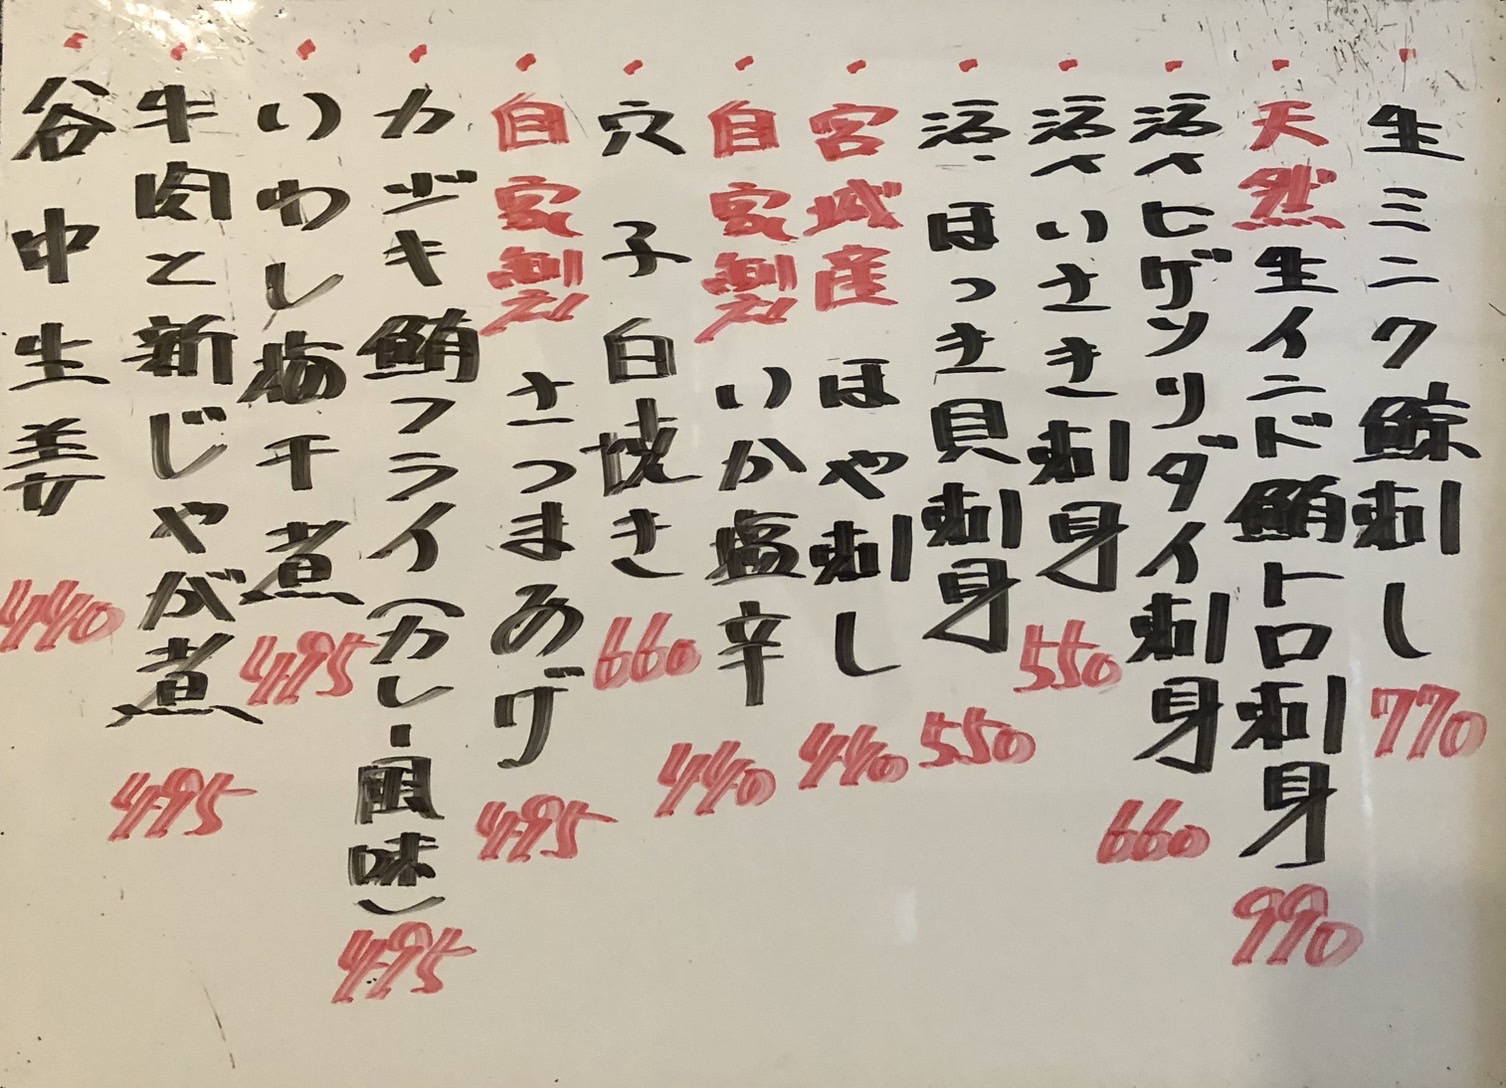 ・生ミンク鯨刺し 770
・天然生インド鮪トロ刺身 990
・活〆ヒゲソリダイ刺身 660
・活〆いさき刺身 550
・活、ほっき貝刺身 550
・宮城産ほや刺し 440
・自家製いか塩辛 440
・穴子白焼き 660
・自家製さつまあげ 495
・カジキ鮪フライ(カレー風味) 495
・いわし梅干煮 495
・牛肉と新じゃが煮 495
・谷中生姜 440